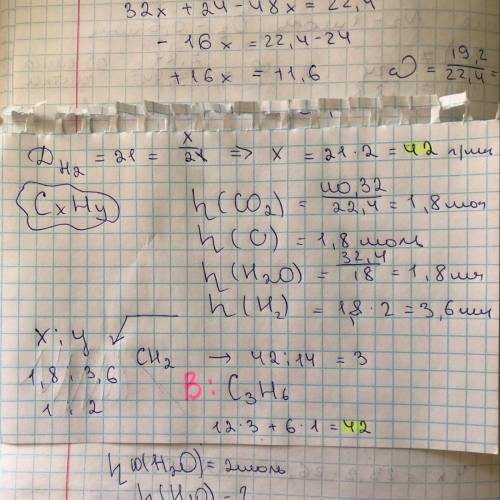 32x + 24 - 48x = 22,4
- 16x = 22,4-24
+16x = 11,6
ω = 19,2/22,4 =
D H2 = 21 = x/21 => x = 21·2 = 42 г/мл
CxHy
n(CO2) = 40,32/22,4 = 1,8мол
n(C) = 1,8 моль
n(H2O) = 32,4/18 = 1,8мл
n(H2) = 1,8·2 = 3,6мл
x : y
1,8 : 3,6
1 : 2
CH2 → 42:14 = 3
В: C3H6
12·3 + 6·1 = 42
(H2O) = 2моль
n(H2O) = ?